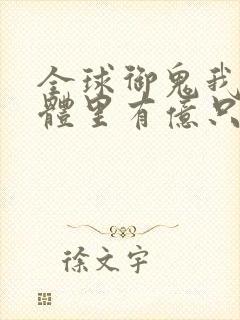 全球御鬼我
體里有億只
徐文宇